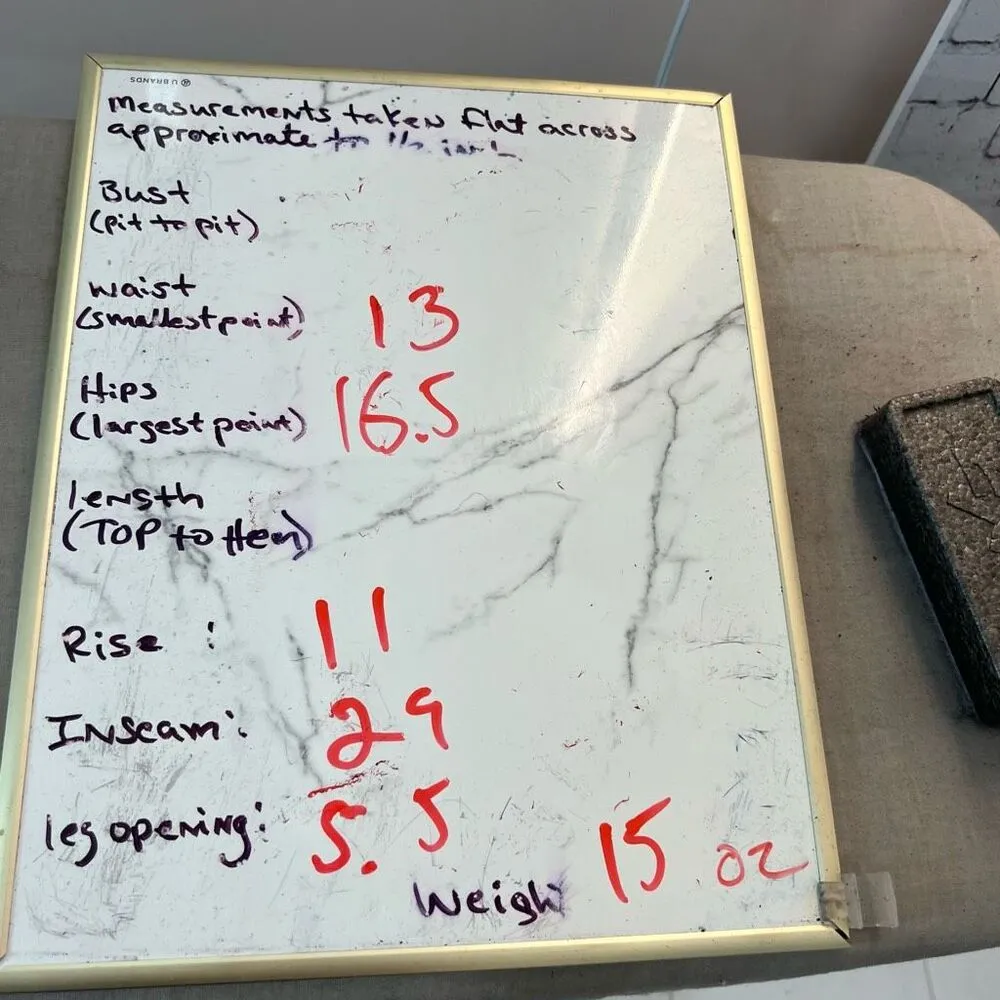 U BRANDS
Measurements taken flat across
approximate to
Bust
(pit to pit)
waist
(smallest point) 13
Hips
(largest point) 16.5
length
(TOP to Hem)
Rise : 11
Inseam: 29
leg opening: 5.5
Weigh 15 oz